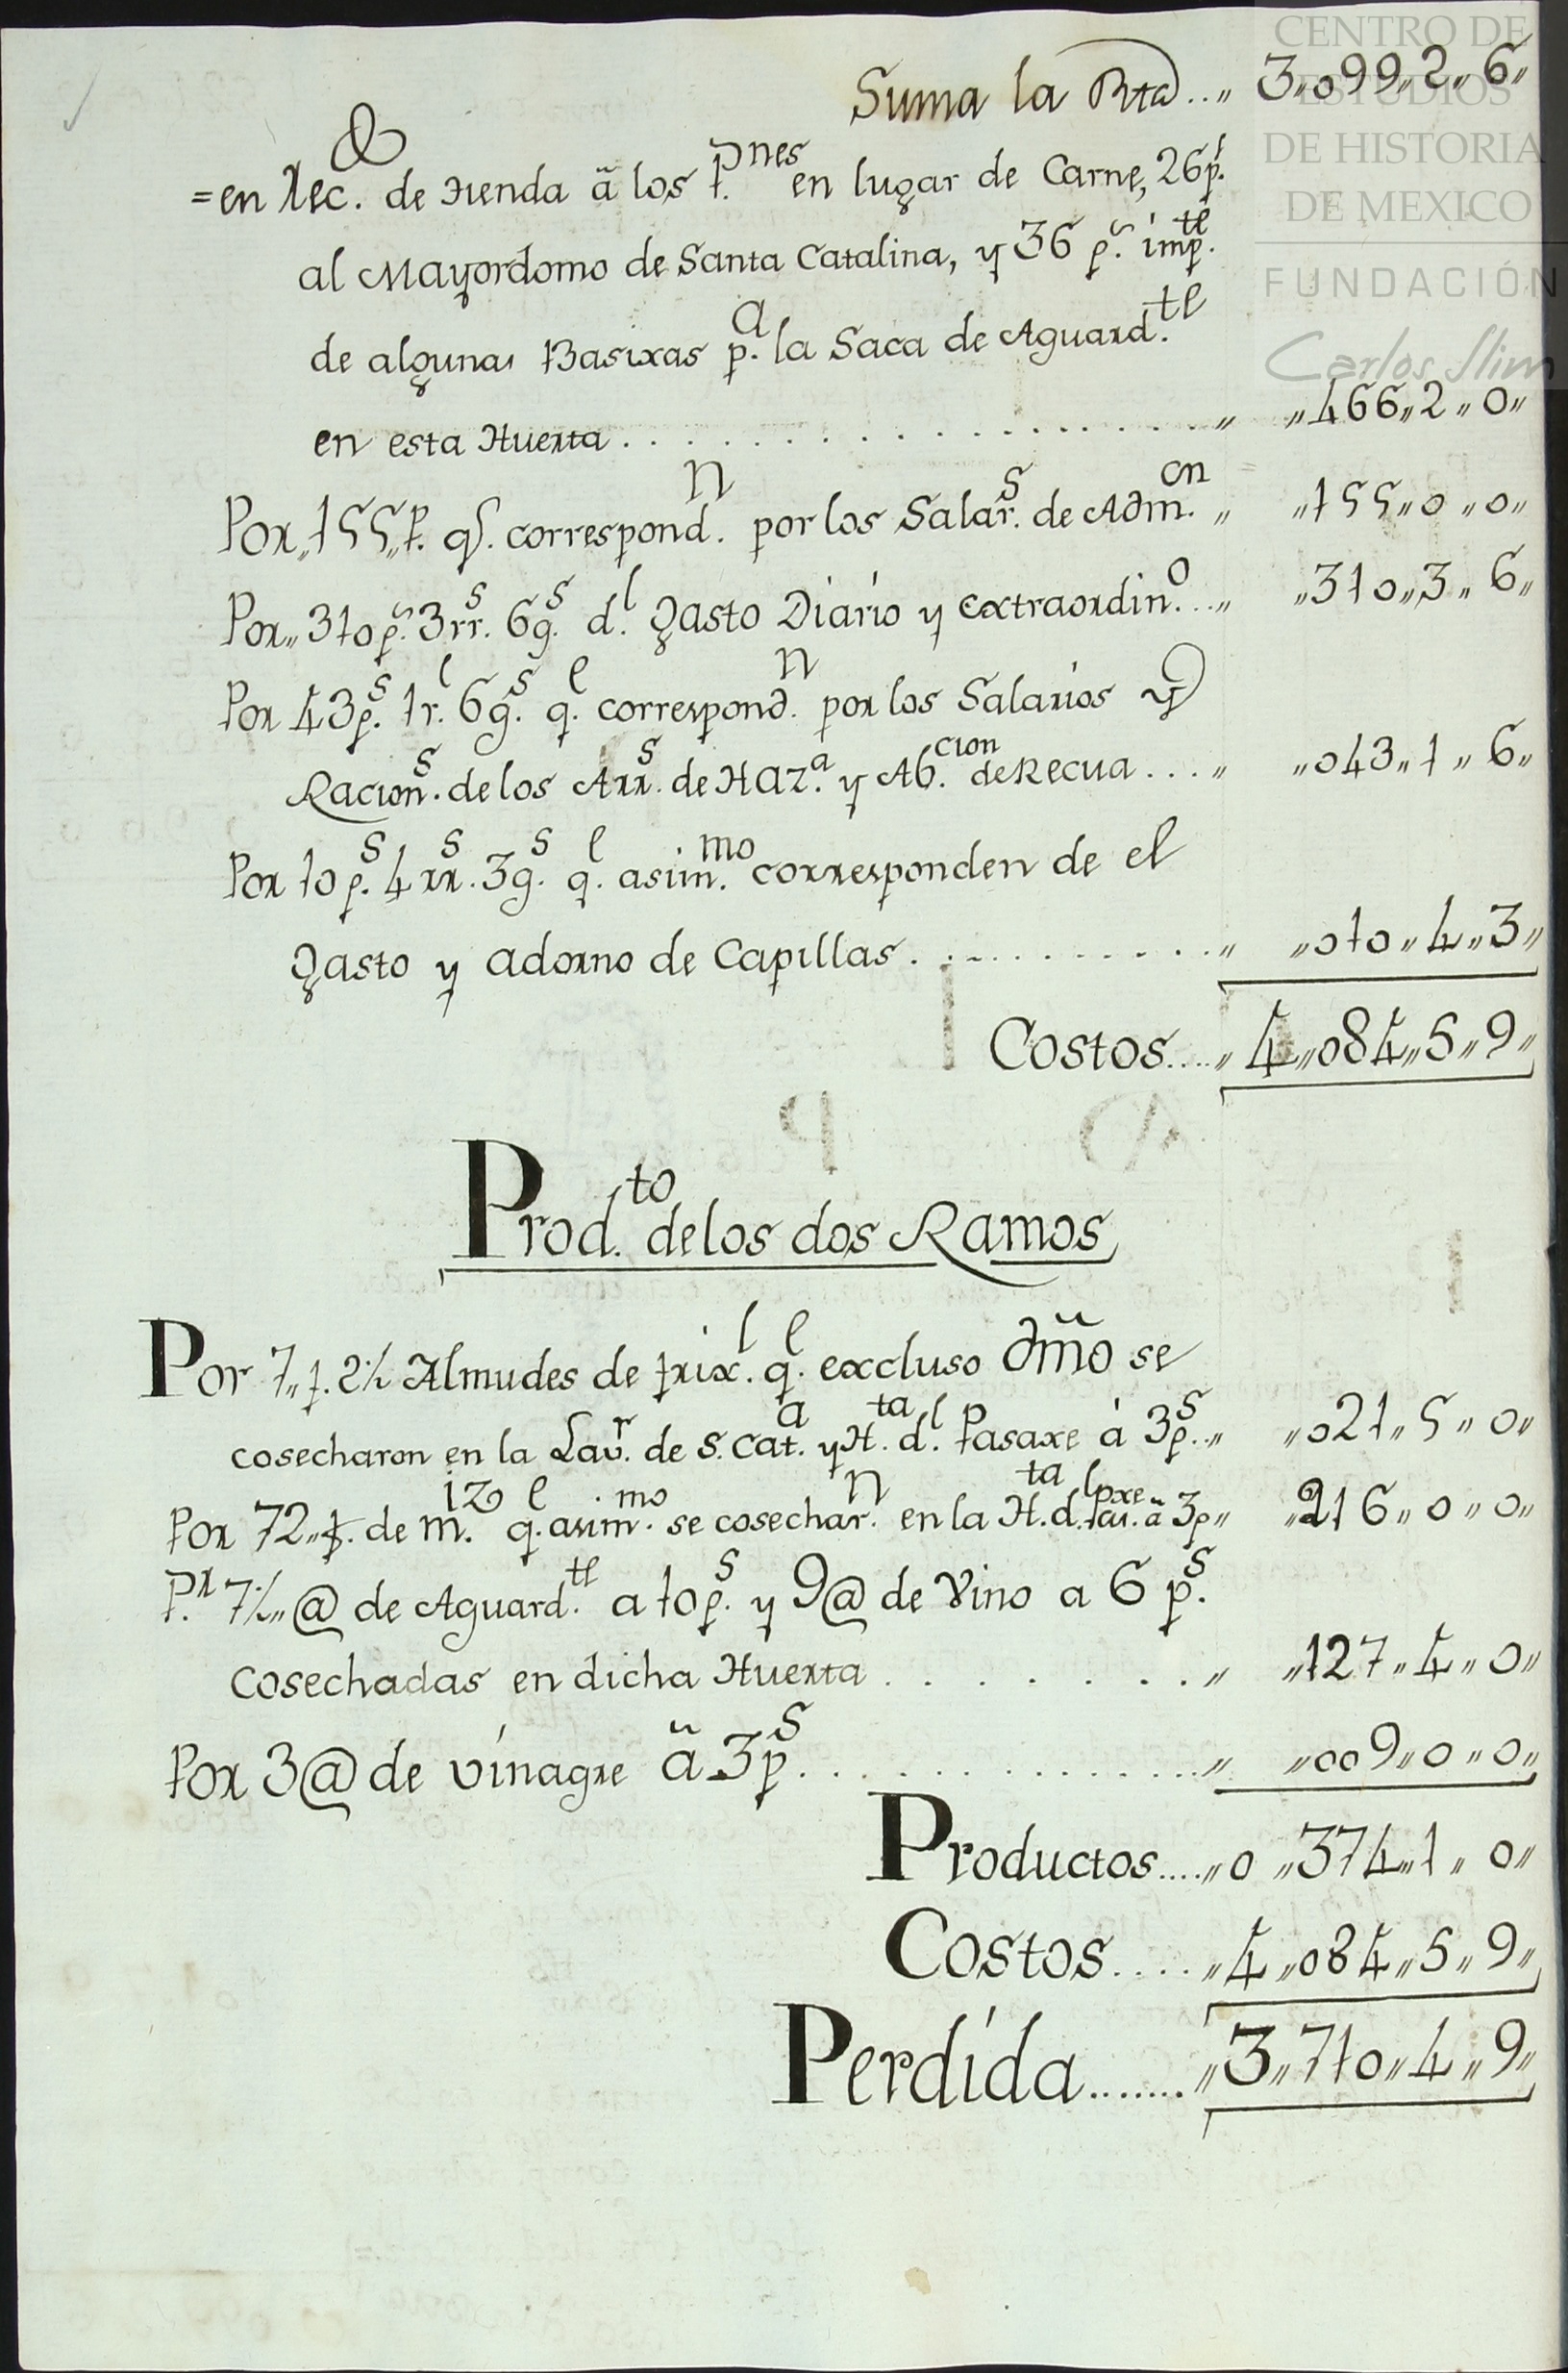 CENTRO DE
ESTUDIOS
DE HISTORIA
DE MEXICO
FUNDACIÓN
Carlos Slim
Suma la Rta.. „ 3„099„2„6„
=en Rec. de tienda ã los P.nes en lugar de Carne, 26p.s
al Mayordomo de Santa Catalina, y 36 p.s imp.te
de algunas Basixas p.a la Saca de Aguard.te
en esta Huerta . . . . . . . . . . . . . . . . . . „ „466„2„0„
Por„155„p. q.e correspond.n por los Salar.s de Adm.on „ „155„0„0„
Por„310p.s 3rr.s 6g.s d.l Gasto Diario y extraordin.o .. „ „310„3„6„
Por 43p.s 1r.l 6g.s q.e correspond.n por los Salarios y
Racion.s de los Arr.s de Haz.a y Ab.cion de Recua . . . „ „043„1„6„
Por 10p.s 4rr.s 3g.s q.e asim.mo corresponden de el
Gasto y adorno de Capillas . . . . . . . . . . . „ „010„4„3„
Costos....„ 4„084„5„9„
Prod.to de los dos Ramos
Por 7„f. 2½ Almudes de frix.l q.e excluso Dmõ se
cosecharon en la Lav.r de S. Cat.a y H.ta d.l Pasaxe á 3p.s „ „021„5„0„
Por 72„f. de m.iz q.e asim.mo se cosechar.n en la H.ta d.l Pas.axe ã 3p „ „216„0„0„
P.r 7½„@ de Aguard.te a 10p.s y 9@ de Vino a 6 p.s
cosechadas en dicha Huerta . . . . . . . „ „127„4„0„
Por 3@ de vinagre ã 3p.s . . . . . . . . . . . . „ „009„0„0„
Productos....„0„374„1„0„
Costos.....„4„084„5„9„
Perdida.......„3„710„4„9„